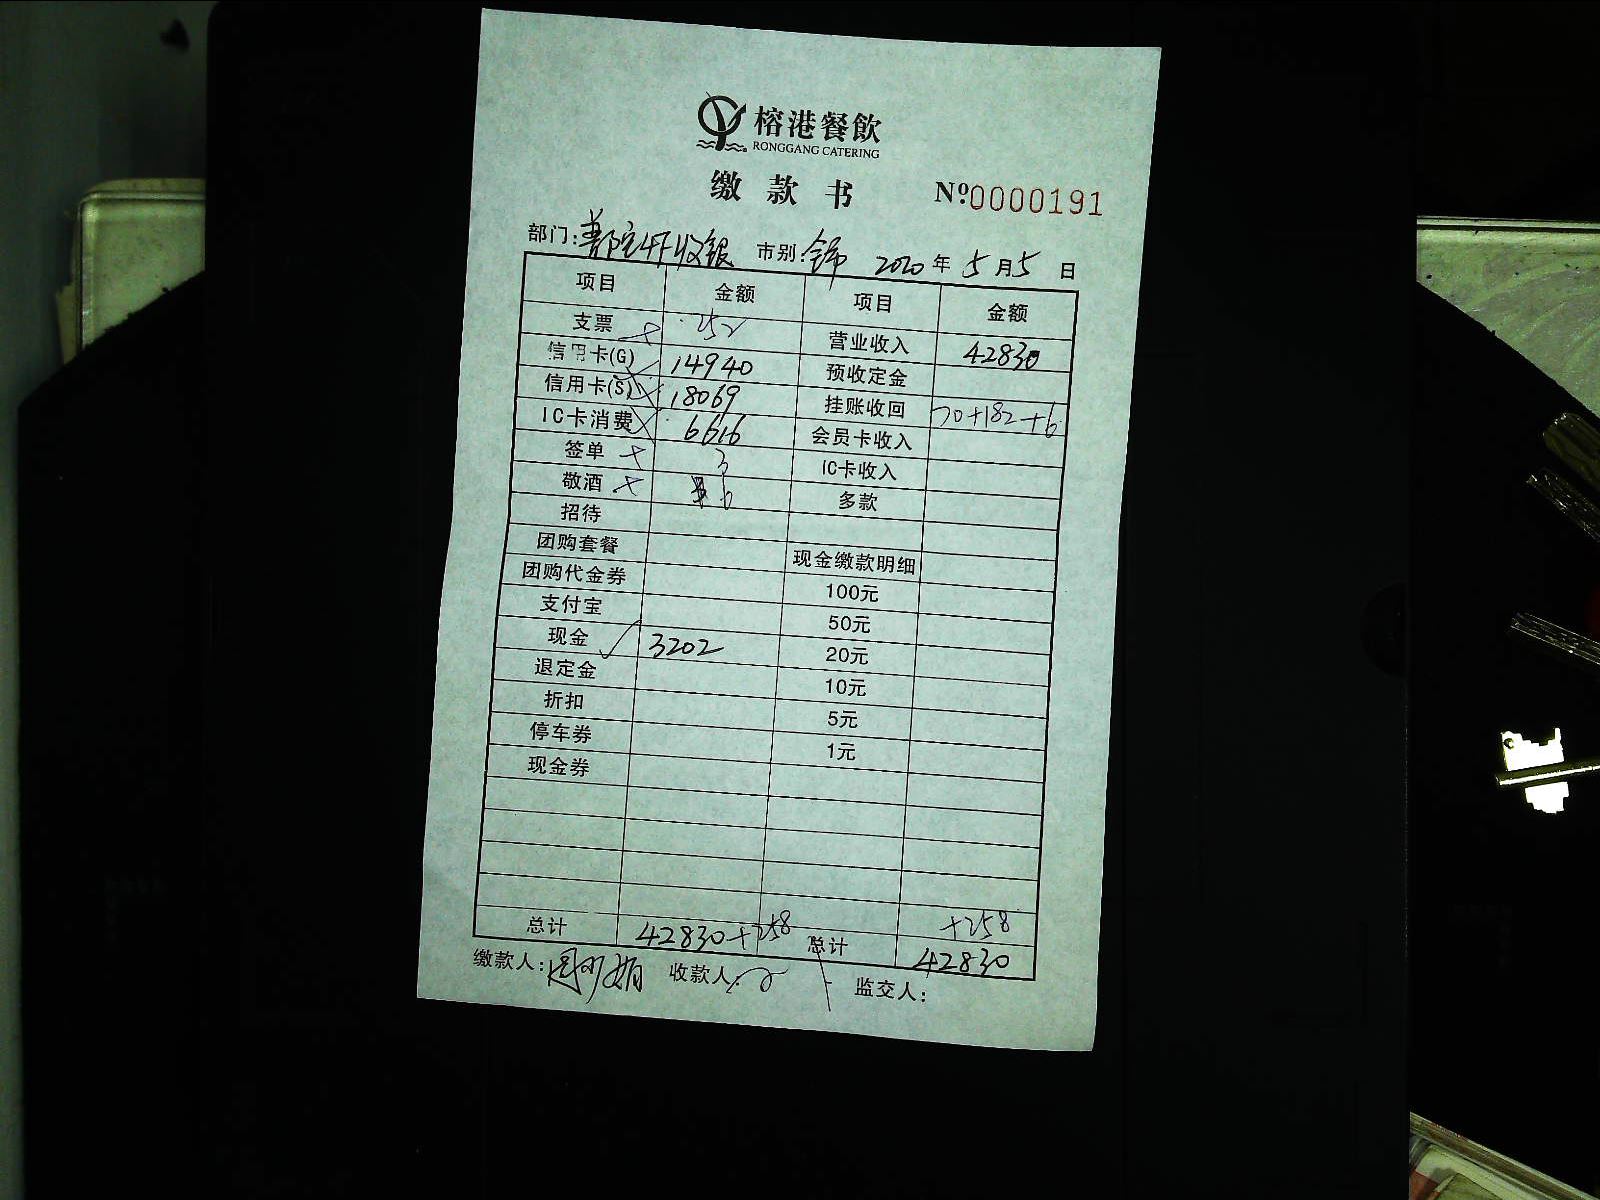 榕港餐飲
RONGGANG CATERING
缴款书 No.0000191
部门: 收银 市别: 2020年5月5日
项目 金额 项目 金额
支票 252 营业收入 42830
信用卡(G) 14940 预收定金
信用卡(S) 18069 挂账收回 70+182+6
IC卡消费 6616 会员卡收入
签单 3 IC卡收入
敬酒 6 多款
招待
团购套餐 现金缴款明细
团购代金券 100元
支付宝 50元
现金 ✓ 3202 20元
退定金 10元
折扣 5元
停车券 1元
现金券
+258
总计 42830+258 总计 42830
缴款人: 收款人: 监交人: